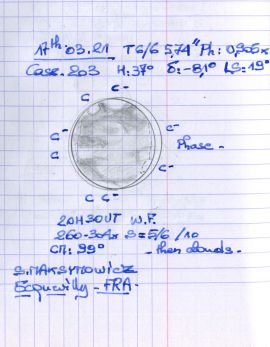 17th 03.21 T6/6 5,74" Ph: 0,906x
Cass. 203 H: 37° δ: -8,1° LS: 19°
C C-
C- C-
C
C C-
C C
Phase -
20H30UT W.F.
260-304x S=5/6 /10
CM: 99° - then clouds -
S.MAKSYMOWICZ
Ecquevilly - FRA -